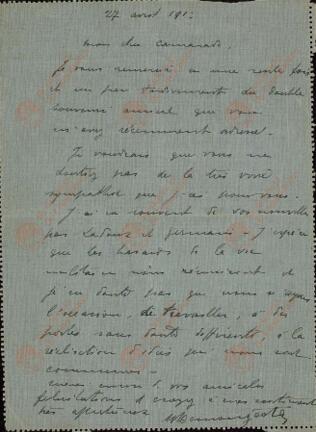 27 avril 191
mon cher camarade,
Je vous remercie
et un peu tardivement du double
souvenir amical que vous
m'avez récemment adressé.
Je voudrais que vous ne
doutiez pas de la très vive
sympathie que j'ai pour vous.
J'ai souvent de vos nouvelles
par Ladoux et Germain. J'espère
que les hasards de la vie
militaire nous réuniront et
je ne doute pas que nous n'ayons
l'occasion, de travailler, à des
postes sans doute différents, à la
réalisition d'idées qui nous sont
communes.
encore merci de vos amicales
félicitations et croyez à mes sentiments
très affectueux